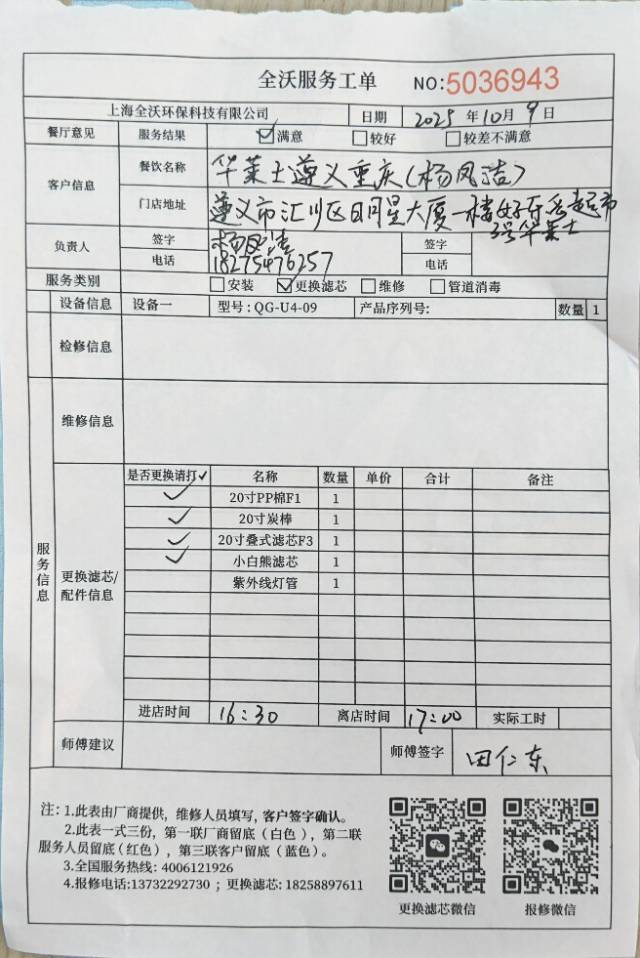 全沃服务工单 NO:5036943
上海全沃环保科技有限公司 日期 2025年10月9日
餐厅意见 服务结果 ☑满意 □较好 □较差不满意
客户信息 餐饮名称 华莱士遵义重庆(杨凤洁)
门店地址 遵义市汇川区日月星大厦一楼好又多超市
3号华莱士
负责人 签字 杨凤洁 签字
电话 18275476257 电话
服务类别 □安装 ☑更换滤芯 □维修 □管道消毒
设备信息 设备一 型号: QG-U4-09 产品序列号: 数量 1
检修信息
维修信息
服务信息
更换滤芯/配件信息
是否更换请打✓ 名称 数量 单价 合计 备注
✓ 20寸PP棉F1 1
✓ 20寸炭棒 1
✓ 20寸叠式滤芯F3 1
✓ 小白熊滤芯 1
紫外线灯管 1
进店时间 16:30 离店时间 17:00 实际工时
师傅建议 师傅签字 田仁东
注: 1.此表由厂商提供，维修人员填写, 客户签字确认。
2.此表一式三份，第一联厂商留底（白色），第二联
服务人员留底(红色），第三联客户留底（蓝色）。
3.全国服务热线: 4006121926
4.报修电话:13732292730 ; 更换滤芯: 18258897611
更换滤芯微信 报修微信